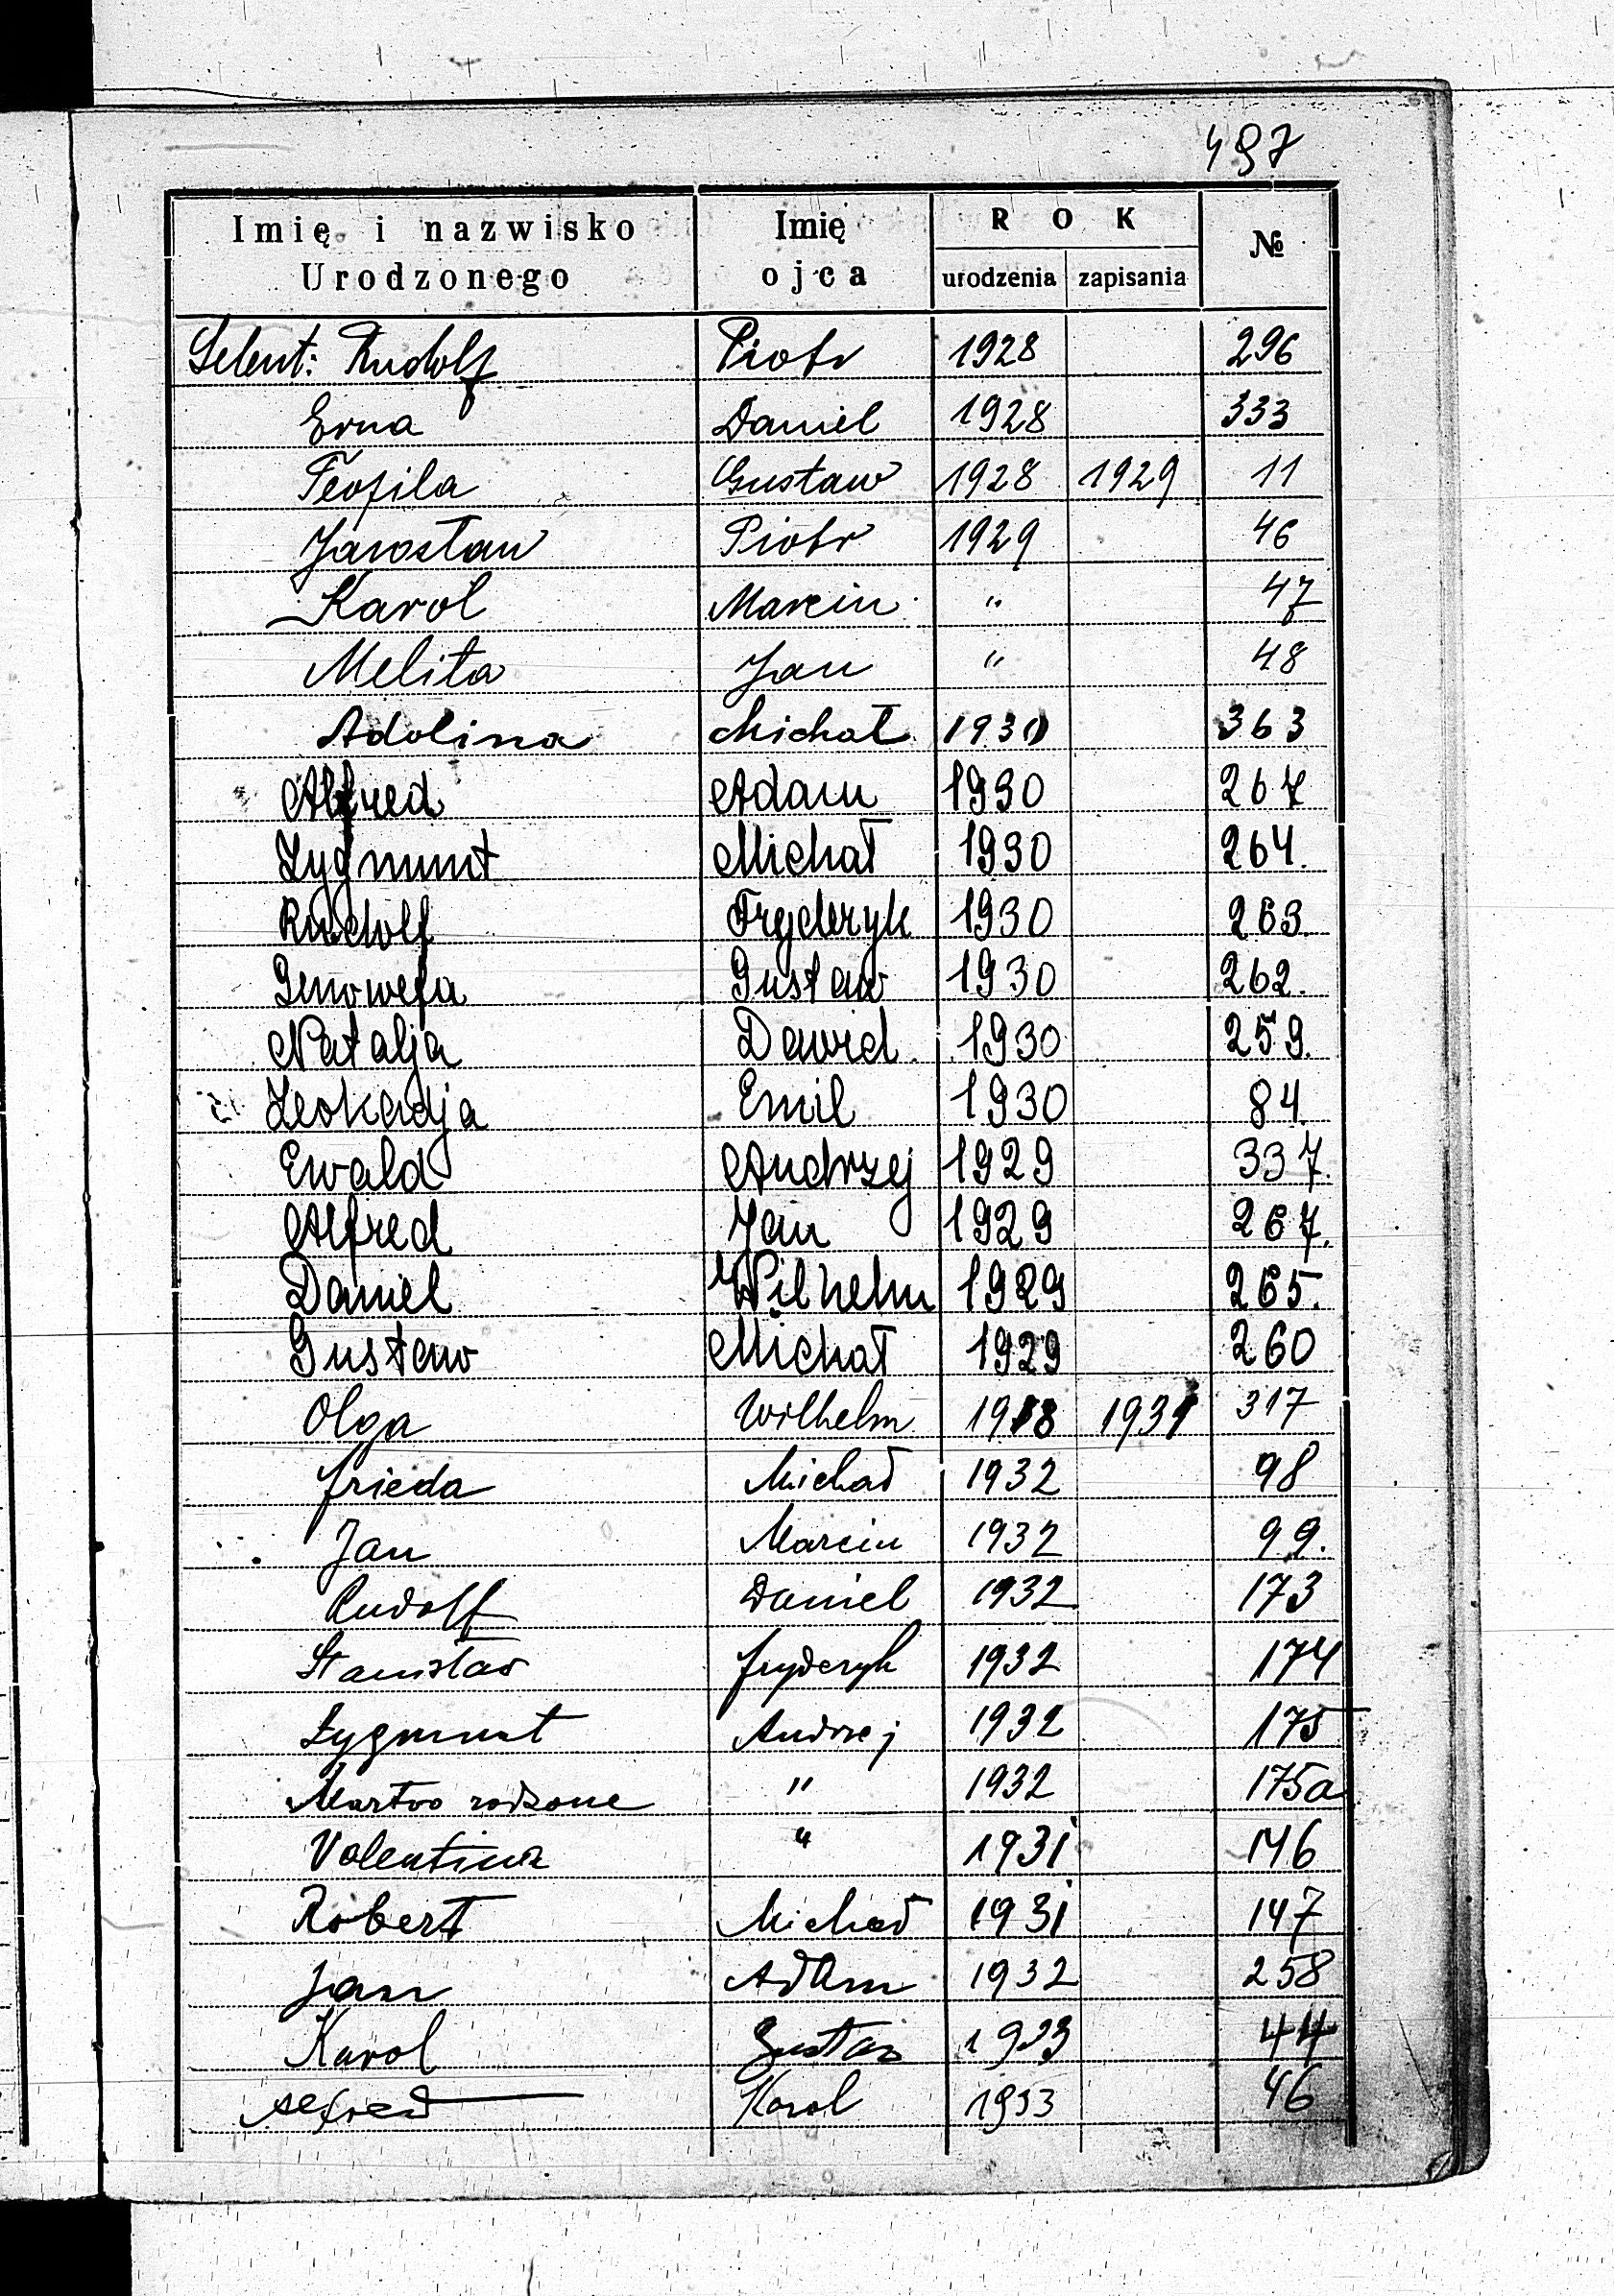 497
Imię i nazwisko Urodzonego Imię ojca ROK urodzenia zapisania №
Selent: Rudolf Piotr 1928 296
Erna Daniel 1928 333
Teofila Gustaw 1928 1929 11
Jarosław Piotr 1929 46
Karol Marcin " 47
Melita Jan " 48
Adolina Michał 363
Alfred Adam 1930 267
Zygmunt Michał 1930 264.
Rudolf Fryderyk 1930 263.
Genowefa Gustaw 1930 262.
Natalja Dawid 1930 259.
Leokadja Emil 1930 84
Ewald Andrzej 1929 337.
Alfred Jan 1929 267.
Daniel Wilhelm 1929 265.
Gustaw Michał 1929 260
Olga Wilhelm 1931 317
Frieda Michał 1932 98
Jan Marcin 1932 99.
Rudolf Daniel 1932 173
Stanisław Fryderyk 1932 174
Zygmunt Andrzej 1932 175
Martwo rodzone " 1932 175a
Valentina " 1931 146
Robert Michał 1931 147
Jan Adam 1932 258
Karol Gustaw 1933 44
Alfred Karol 1933 46